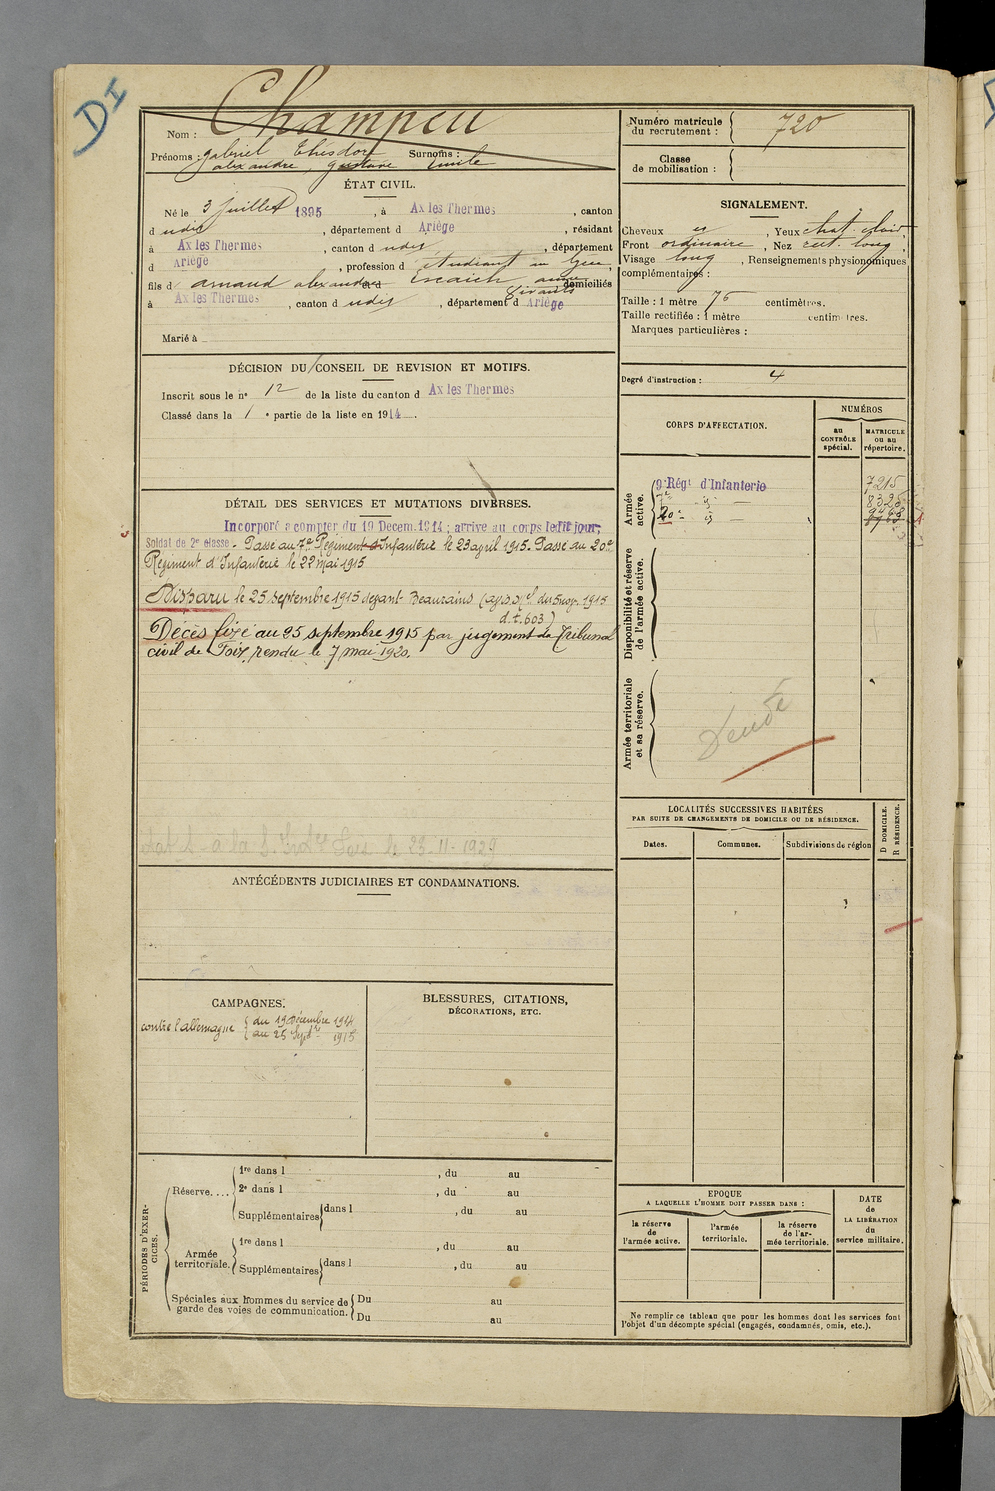 DI
Nom : Champeil
Prénoms : gabriel Théodore Surnoms :
alexandre, gustave Emile
ÉTAT CIVIL.
Né le 3 Juillet 1895, à Ax les Thermes, canton
d udit, département d Ariège, résidant
à Ax les Thermes, canton d udit, département
d Ariège, profession d étudiant au
fils d arnaud alexandre et d Escaich domiciliés
vivants
à Ax les Thermes, canton d udit, département d Ariège
Marié à
DÉCISION DU CONSEIL DE REVISION ET MOTIFS.
Inscrit sous le n° 12 de la liste du canton d Ax les Thermes
Classé dans la 1 e partie de la liste en 1914.
DÉTAIL DES SERVICES ET MUTATIONS DIVERSES.
Incorporé a compter du 19 Decem. 1914; arrive au corps ledit jour;
Soldat de 2e classe. Passé au 7e Régiment d'Infanterie le 23 april 1915. Passé au 20e
Régiment d'Infanterie le 22 mai 1915
Disparu le 25 septembre 1915 devant Beaurains (du 5 nov. 1915
d.t. 603)
Décès fixé au 25 septembre 1915 par jugement du Tribunal
civil de Foix, rendu le 7 mai 1920.
à la le 23-11-1929
ANTÉCÉDENTS JUDICIAIRES ET CONDAMNATIONS.
CAMPAGNES.
contre l'allemagne { du 19 Décembre 1914
{ au 25 Septbre 1915
BLESSURES, CITATIONS,
DÉCORATIONS, ETC.
PÉRIODES D'EXERCICES.
Réserve....
1re dans l , du au
2e dans l , du au
Supplémentaires { dans l , du au
Armée
territoriale.
1re dans l , du au
Supplémentaires { dans l , du au
Spéciales aux hommes du service de
garde des voies de communication.
Du au
Du au
Numéro matricule
du recrutement : 720
Classe
de mobilisation :
SIGNALEMENT.
Cheveux , Yeux chat. clair
Front ordinaire, Nez rect. long,
Visage long, Renseignements physionomiques
complémentaires :
Taille : 1 mètre 76 centimètres.
Taille rectifiée : 1 mètre centimètres.
Marques particulières :
Degré d'instruction : 4
CORPS D'AFFECTATION.
NUMÉROS
au
CONTRÔLE
spécial.
MATRICULE
ou au
répertoire.
Armée
active.
9e Régt d'Infanterie 7215
7e - 8325
20e -
Disponibilité et réserve
de l'armée active.
Armée territoriale
et sa réserve.
LOCALITÉS SUCCESSIVES HABITÉES
PAR SUITE DE CHANGEMENTS DE DOMICILE OU DE RÉSIDENCE.
D DOMICILE.
R RÉSIDENCE.
Dates. Communes. Subdivisions de région
EPOQUE
A LAQUELLE L'HOMME DOIT PASSER DANS :
la réserve
de
l'armée active.
l'armée
territoriale.
la réserve
de l'ar-
mée territoriale.
DATE
de
LA LIBÉRATION
du
service militaire.
Ne remplir ce tableau que pour les hommes dont les services font
l'objet d'un décompte spécial (engagés, condamnés, omis, etc.).